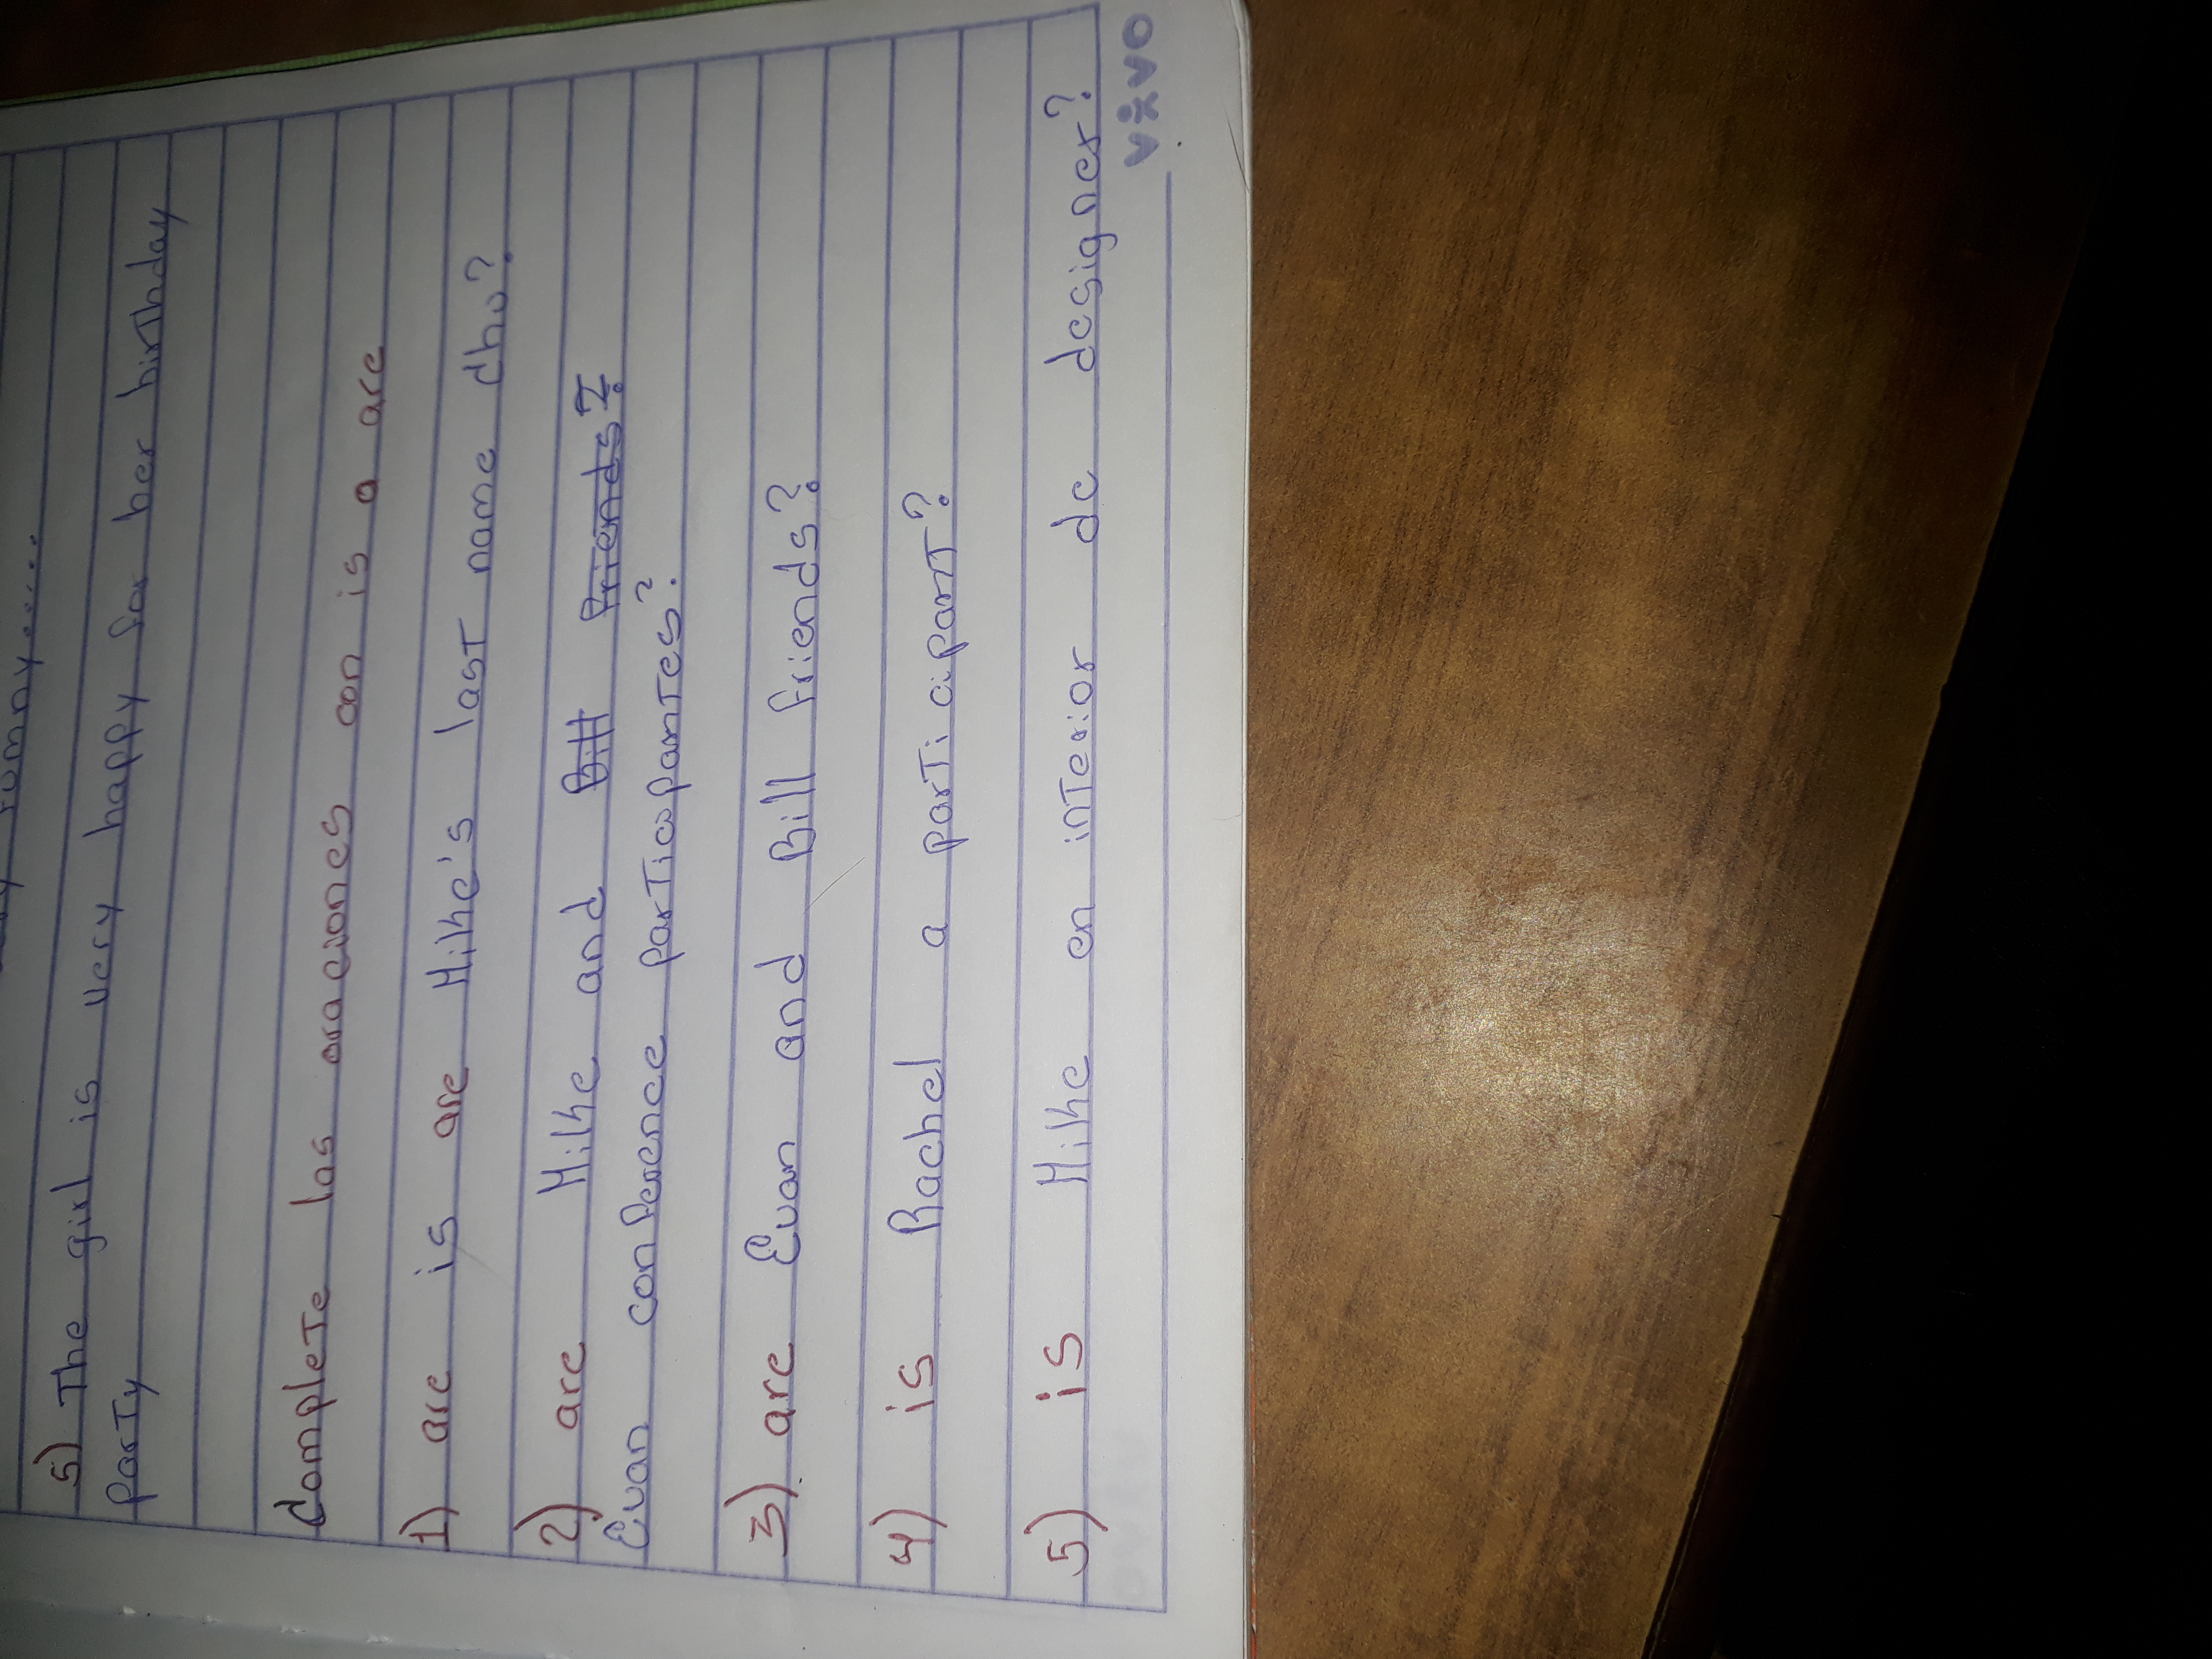 funny....
5) The girl is very happy for her birthday
party
Complete las oraciones con is o are
1) are is are Mike's last name chu?
2) are Mike and Bill Friends?
Evan conference participantes?
3) are Evan and Bill friends?
4) is Rachel a participant?
5) is Mike en interior de designer?
vivo